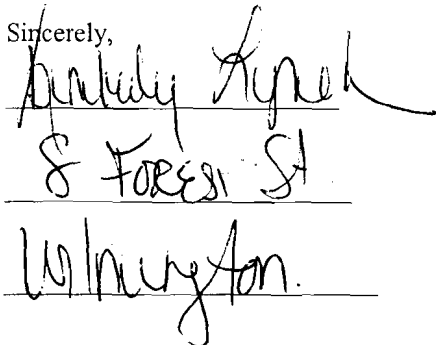 Sincerely,
Kimberly Lynch
8 FOREST St
Wilmington.